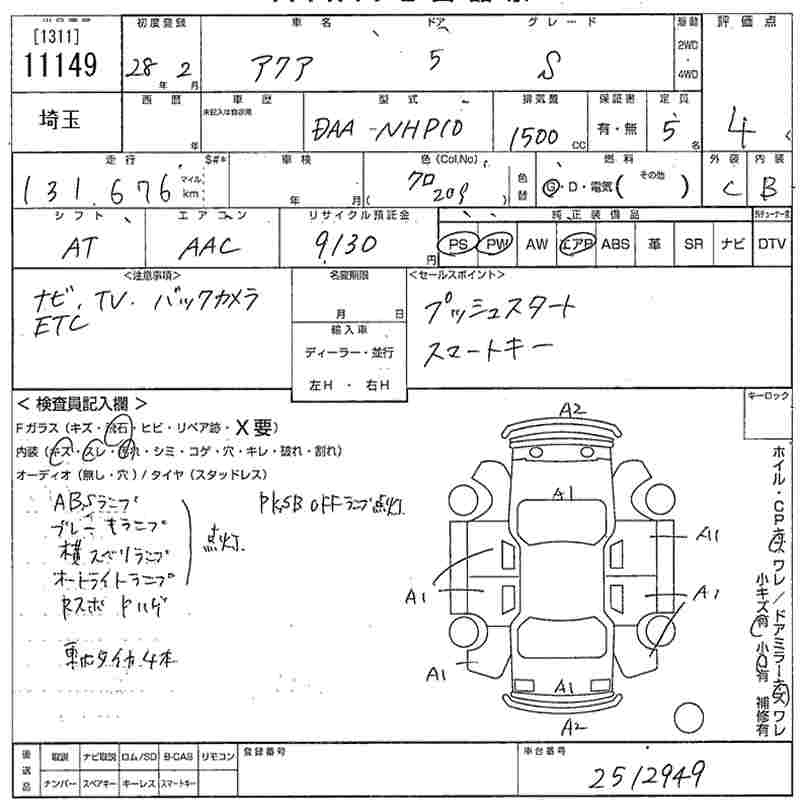 [1311]
11149
初度登録
28年 2月
車名
アクア
ドア
5
グレード
S
駆動
2WD
・
4WD
評価点
4
埼玉
西暦
年
車歴
未記入は自家用
型式
DAA-NHP10
排気量
1500 CC
保証書
有・無
定員
5名
走行
131,676 マイル km
S#*
車検
年 月
色(Col,No)
クロ
( 209 )
色替
燃料
G・D・電気( その他 )
外装
C
内装
B
シフト
AT
エアコン
AAC
リサイクル預託金
9130円
純正装備品
PS PW AW エアB ABS 革 SR ナビ DTV
<注意事項>
ナビ、TV. バックカメラ
ETC
名変期限
月 日
輸入車
ディーラー・並行
左H ・ 右H
<セールスポイント>
プッシュスタート
スマートキー
<検査員記入欄>
Fガラス (キズ・飛石・ヒビ・リペア跡・X要)
内装 (キズ・スレ・汚れ・シミ・コゲ・穴・キレ・破れ・割れ)
オーディオ (無し・穴) / タイヤ (スタッドレス)
ABSランプ
ブレーキランプ
横スベリランプ
オートライトランプ
点灯.
PKSB OFFランプ点灯.
RスポPハゲ
4本
キーロック
A2
A1
A1
A1
A1
A1
A1
A1
A2
ホイル・CPキズ ワレ / ドアミラーキズ ワレ
小キズ有 小凹有 補修有
後送品
取説 ナビ取説 ロム/SD B-CAS リモコン
ナンバー スペアキー キーレス スマートキー
登録番号
車台番号
2512949